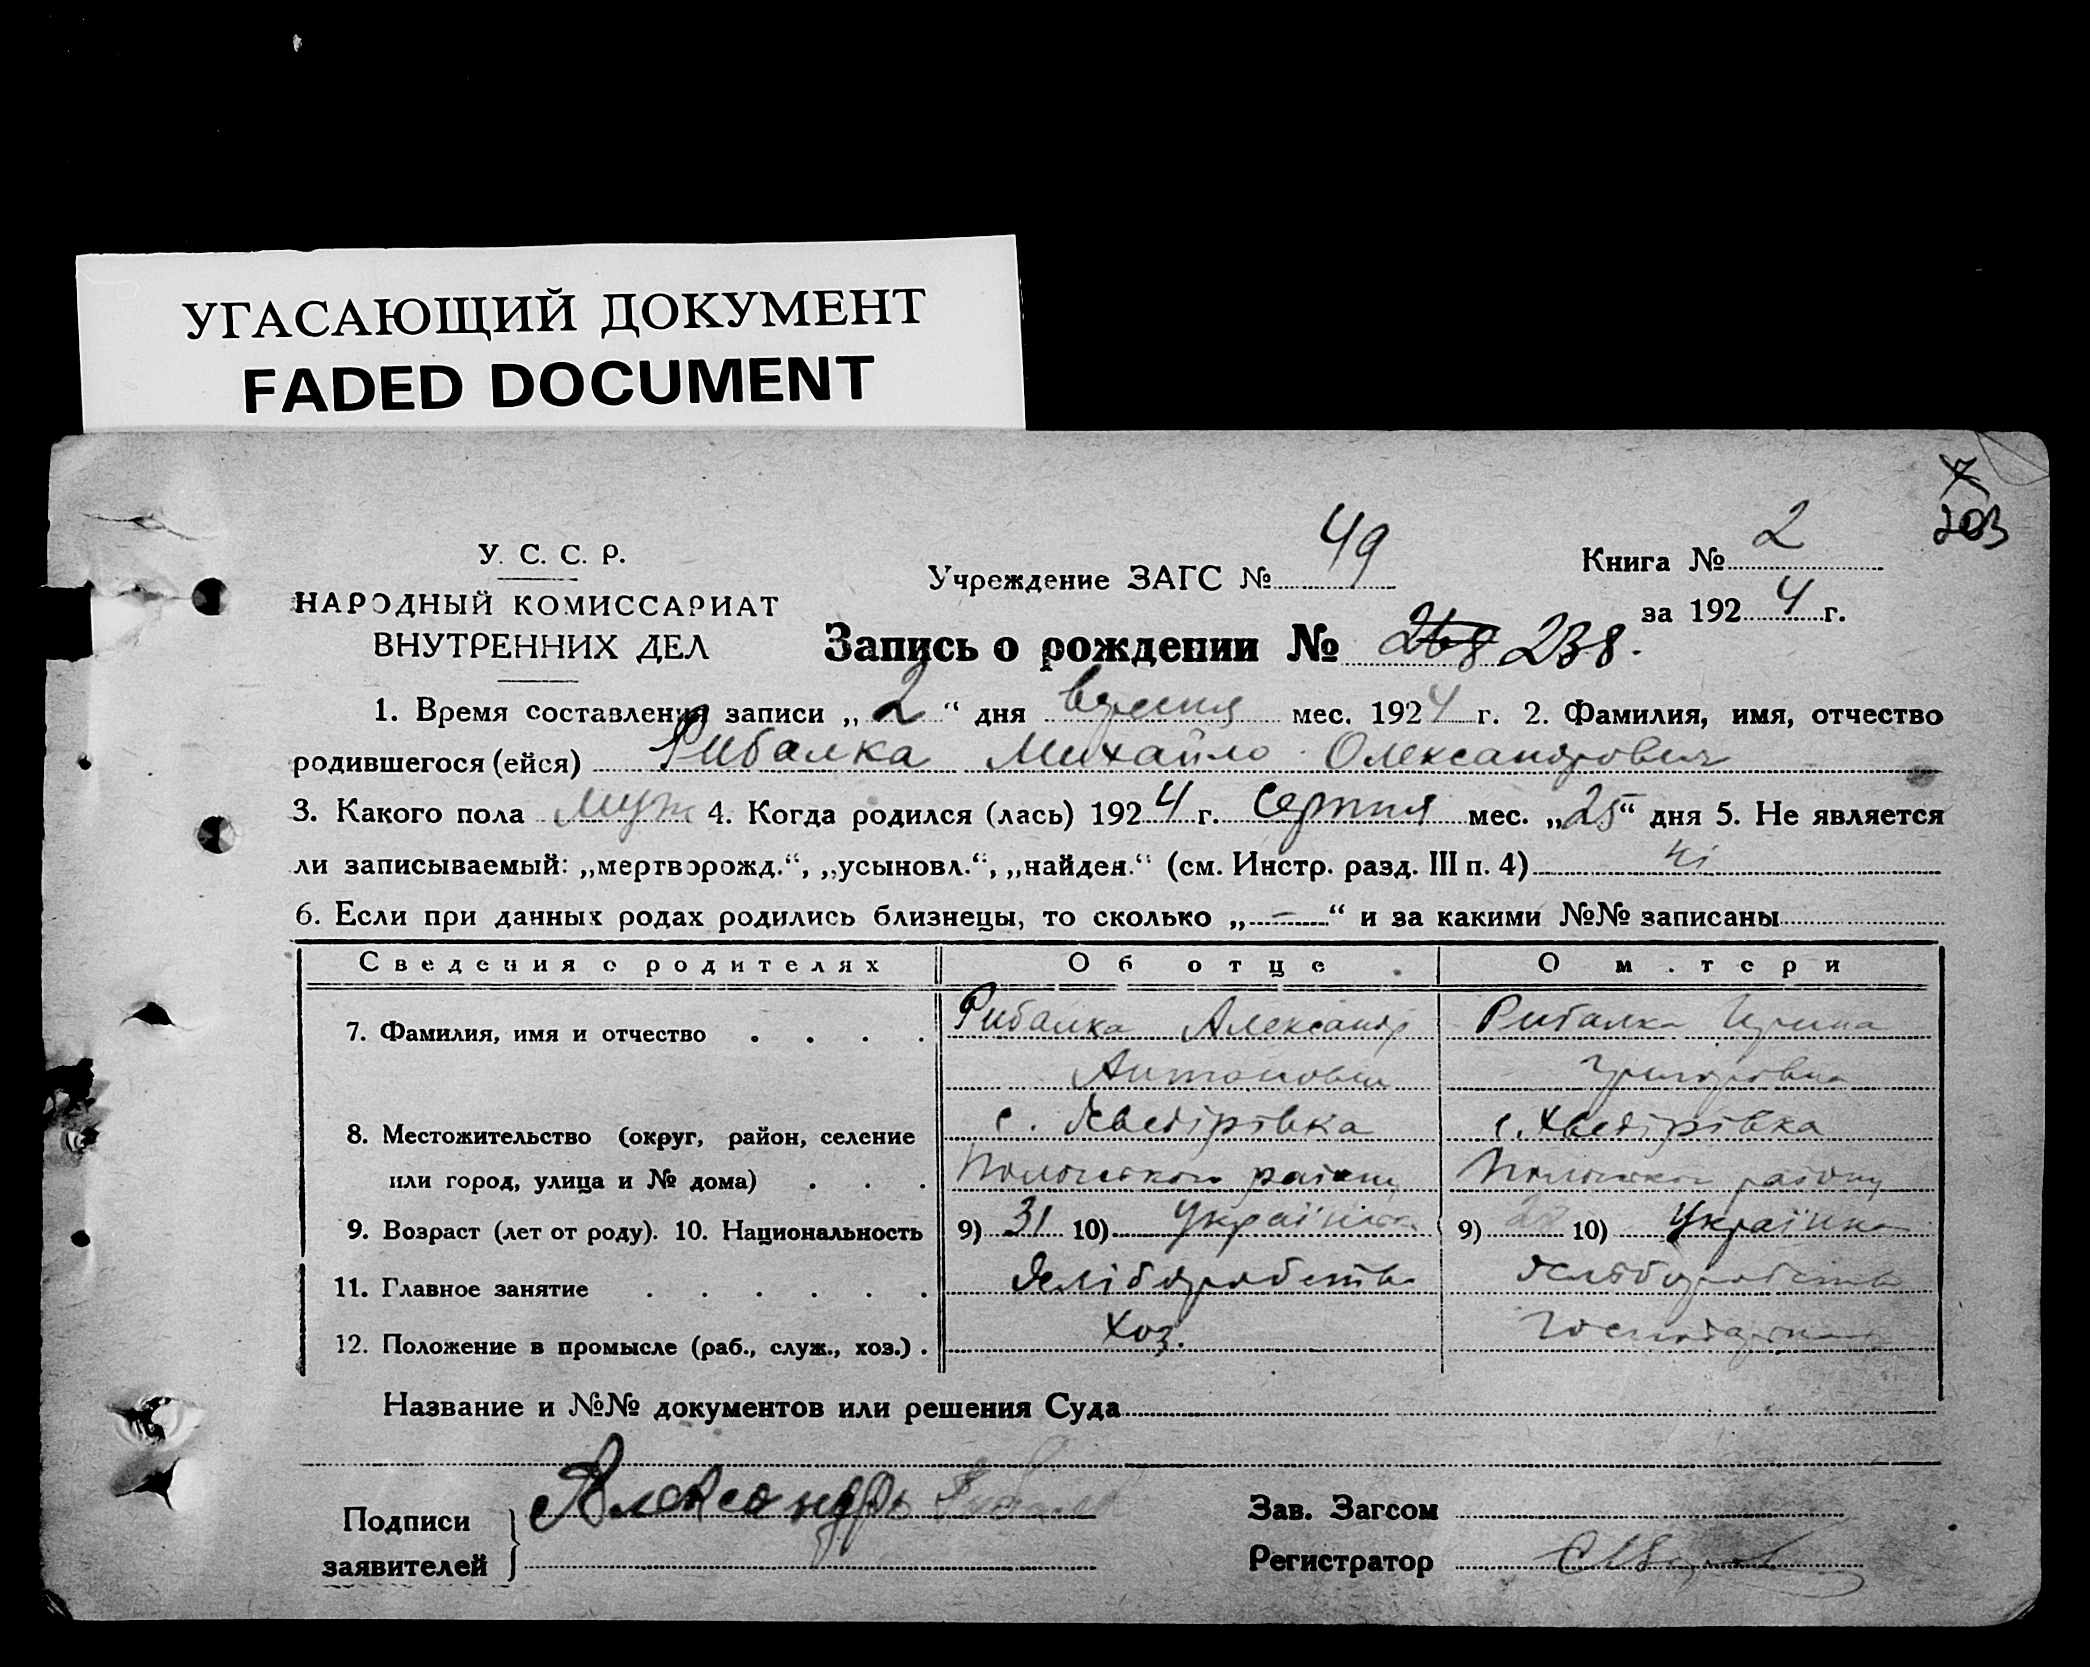 УГАСАЮЩИЙ ДОКУМЕНТ
FADED DOCUMENT
203
У. С. С. Р.
НАРОДНЫЙ КОМИССАРИАТ
ВНУТРЕННИХ ДЕЛ
Учреждение ЗАГС № 49
Книга № 2
за 1924 г.
Запись о рождении № 268 238.
1. Время составления записи „2“ дня вересня мес. 1924 г. 2. Фамилия, имя, отчество
родившегося (ейся) Рибалка Михайло Олександрович
3. Какого пола муж 4. Когда родился (лась) 1924 г. серпня мес. „25“ дня 5. Не является
ли записываемый: „мертворожд.“, „усыновл.“, „найден.“ (см. Инстр. разд. III п. 4) ні
6. Если при данных родах родились близнецы, то сколько „-“ и за какими №№ записаны
Сведения о родителях Об отце О м.тери
7. Фамилия, имя и отчество . . . . Рибалка Александр Рибалка Ирина
Антонович Григоровна
8. Местожительство (округ, район, селение с. Хведірівка с. Хведірівка
или город, улица и № дома) . . . району району
9. Возраст (лет от роду). 10. Национальность 9) 31 10) Українец 9) 28 10) Українка
11. Главное занятие . . . . . . хліборобство хліборобство
12. Положение в промысле (раб., служ., хоз.) . хоз.
Название и №№ документов или решения Суда
Подписи
заявителей
Александръ Рибалка
Зав. Загсом
Регистратор